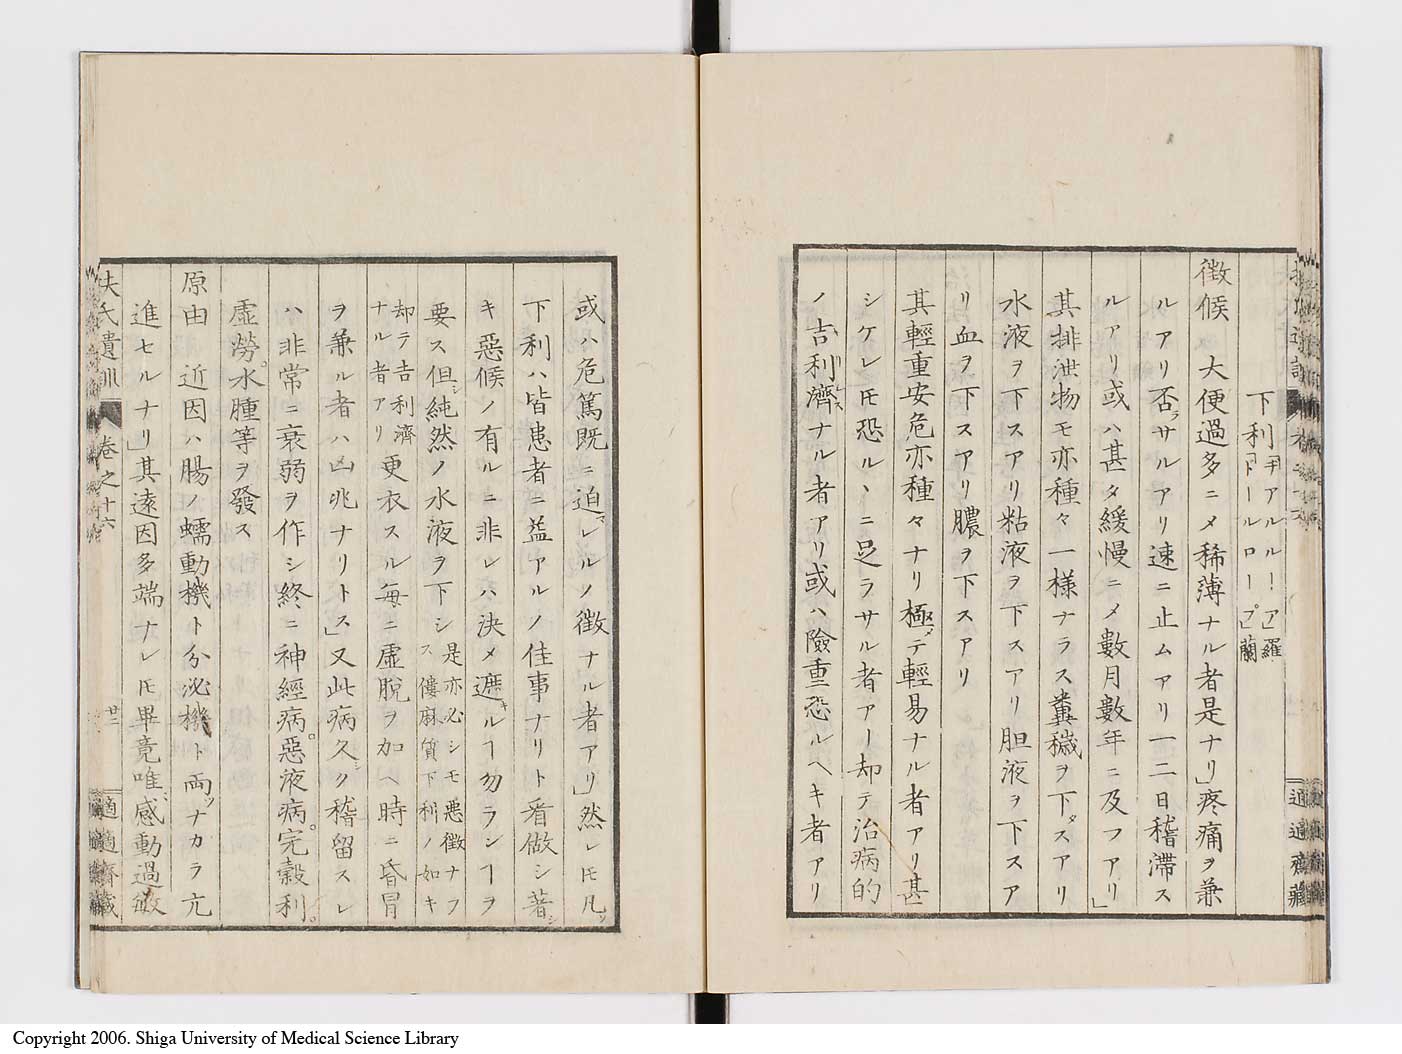 下利 「ヂアルルー!ア」羅 「ドールロープ」蘭
徴候 大便過多ニメ稀薄ナル者是ナリ」疼痛ヲ兼
ルアリ否ラサルアリ速ニ止ムアリ一二日稽滞ス
ルアリ或ハ甚タ緩慢ニメ數月數年ニ及フアリ」
其排泄物モ亦種々一様ナラス糞穢ヲ下タスアリ
水液ヲ下スアリ粘液ヲ下スアリ胆液ヲ下スア
リ血ヲ下スアリ膿ヲ下スアリ
其輕重安危亦種々ナリ極テ輕易ナル者アリ甚
シケレ𪜈恐ルヽニ足ラサル者アー却テ治病的
ノ吉利濟ナル者アリ或ハ險重恐ルヘキ者アリ
適適齋藏
或ハ危篤既ニ迫マレルノ徴ナル者アリ」然レ𪜈凡ソ
下利ハ皆患者ニ益アルノ佳事ナリト看做シ著シ
キ惡候ノ有ルニ非レハ決メ遮キルヿ勿ランヿヲ
要ス但シ純然ノ水液ヲ下シ是亦必シモ悪徴ナラス僂麻質下利ノ如キ
却テ吉利濟ナル者アリ更衣スル毎ニ虚脱ヲ加ヘ時ニ昏冒
ヲ兼ル者ハ凶兆ナリトス」又此病久シク稽留スレ
ハ非常ニ衰弱ヲ作シ終ニ神經病。惡液病。完穀利。
虚勞。水腫等ヲ發ス
原由 近因ハ腸ノ蠕動機ト分泌機ト両ツナカラ亢
進セルナリ」其遠因多端ナレ𪜈畢竟唯感動過敏
扶氏遺訓 卷之十六 廿二 適適齋藏
Copyright 2006. Shiga University of Medical Science Library